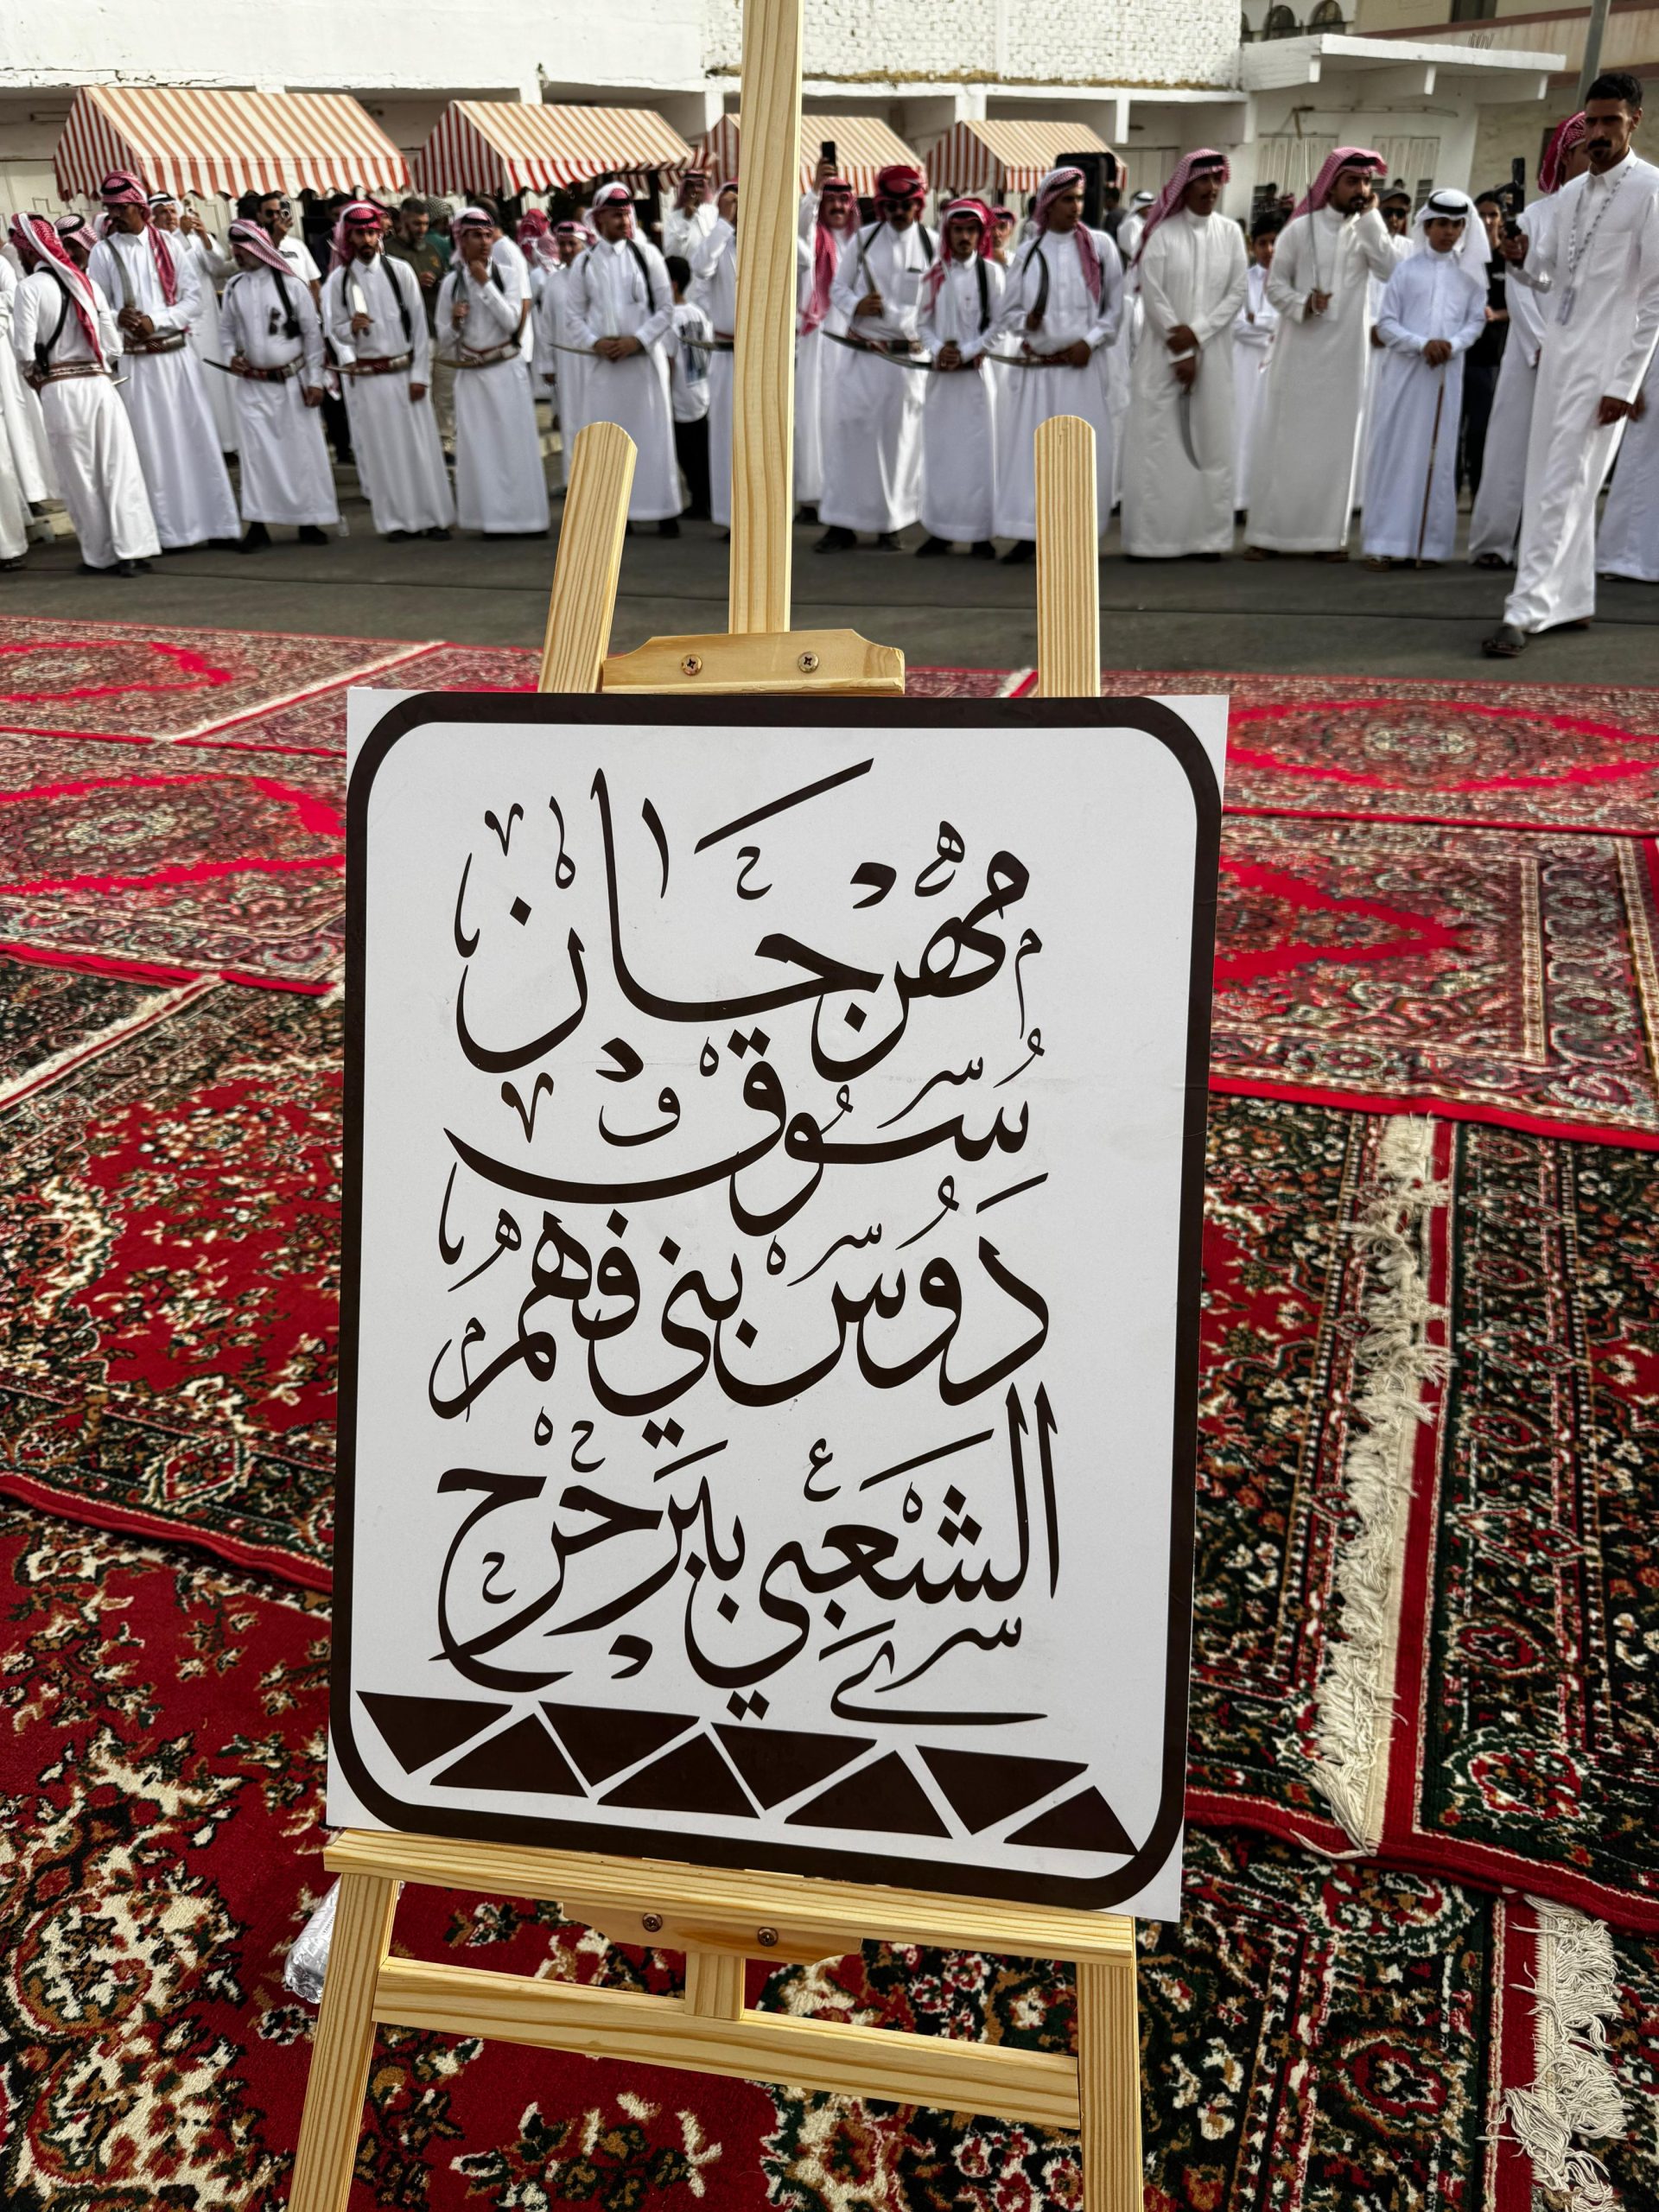 مهرجان
سُوق
دَوُس بني فهم
الشعبي ببرحرح